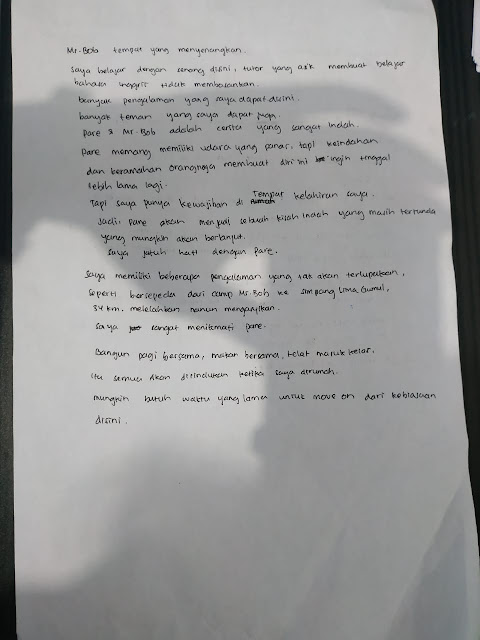 Mr-Bob tempat yang menyenangkan.
Saya belajar dengan senang disini, tutor yang asik membuat belajar
bahasa Inggris tidak membosankan.
banyak pengalaman yang saya dapat disini.
banyak teman yang saya dapat juga.
Pare & Mr-Bob adalah cerita yang sangat indah.
Pare memang memiliki udara yang panas, tapi keindahan
dan keramahan orangnya membuat diri ini ingin tinggal
lebih lama lagi.
Tapi saya punya kewajiban di Tempat kelahiran saya.
Jadi, Pare akan menjadi sebuah kisah indah yang masih tertunda
yang mungkin akan berlanjut.
Saya jatuh hati dengan Pare.
Saya memiliki beberapa pengalaman yang tak akan terlupakan,
seperti bersepeda dari camp Mr-Bob ke Simpang Lima Gumul,
34 km. melelahkan namun mengasikan.
Saya sangat menikmati pare.
Bangun pagi bersama, makan bersama, telat masuk kelas.
itu semua akan dirindukan ketika saya dirumah.
mungkin butuh waktu yang lama untuk move on dari kebiasaan
disini.